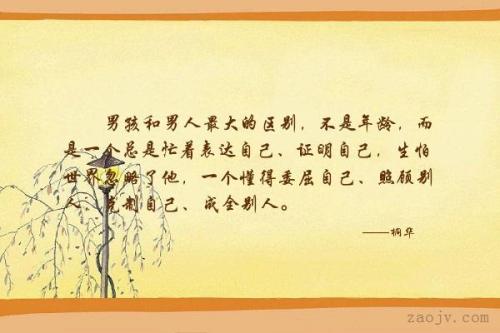 男孩和男人最大的区别，不是年龄，而
是一个总是忙着表达自己、证明自己，生怕
世界忽略了他，一个懂得委屈自己、照顾别
人、克制自己、成全别人。
——桐华
zaojv.com